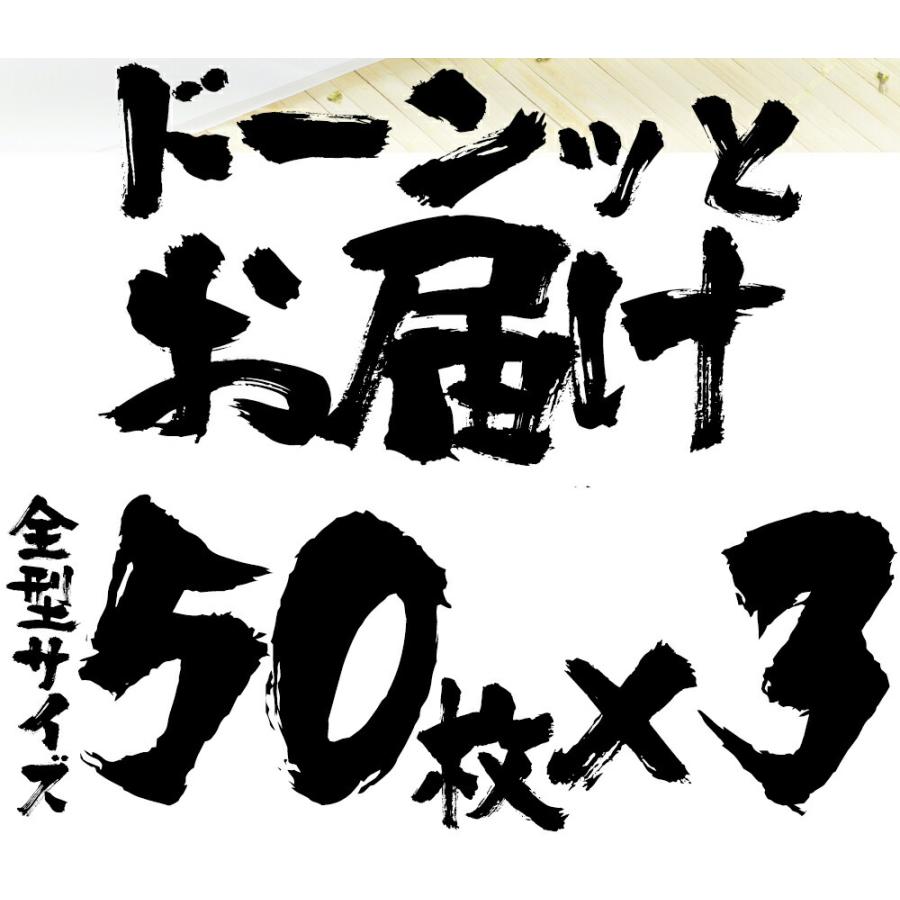 ドーンッと
お届け
全型サイズ
50枚×3